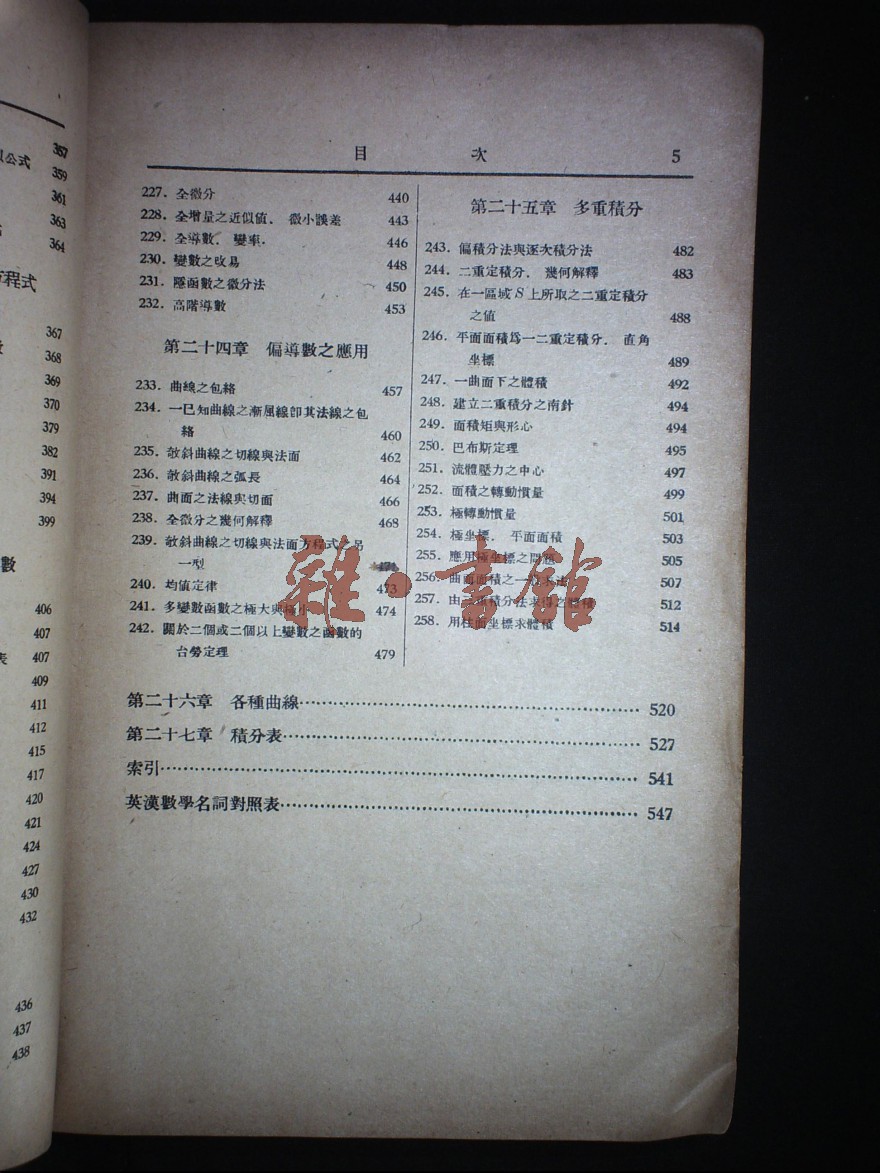 357
公式 359
361
363
364
程式
367
368
369
370
379
382
391
394
399
數
406
407
表 407
409
411
412
415
417
420
421
424
427
430
432
436
437
438
目 次 5
227. 全微分 440
228. 全增量之近似值. 微小誤差 443
229. 全導數. 變率. 446
230. 變數之改易 448
231. 隱函數之微分法 450
232. 高階導數 453
第二十四章 偏導數之應用
233. 曲線之包絡 457
234. 一已知曲線之漸屈線卽其法線之包
絡 460
235. 敧斜曲線之切線與法面 462
236. 敧斜曲線之弧長 464
237. 曲面之法線與切面 466
238. 全微分之幾何解釋 468
239. 敧斜曲線之切線與法面方程式 另
一型
240. 均值定律 473
241. 多變數函數之極大與極小 474
242. 關於二個或二個以上變數之函數的
台勞定理 479
第二十五章 多重積分
243. 偏積分法與逐次積分法 482
244. 二重定積分. 幾何解釋 483
245. 在一區域 S 上所取之二重定積分
之值 488
246. 平面面積爲一二重定積分. 直角
坐標 489
247. 一曲面下之體積 492
248. 建立二重積分之南針 494
249. 面積矩與形心 494
250. 巴布斯定理 495
251. 流體壓力之中心 497
252. 面積之轉動慣量 499
253. 極轉動慣量 501
254. 極坐標. 平面面積 503
255. 應用極坐標之問題 505
256. 曲面面積之一般求法 507
257. 由三重積分法求得之體積 512
258. 用柱面坐標求體積 514
雜·書館
第二十六章 各種曲線 520
第二十七章 積分表 527
索引 541
英漢數學名詞對照表 547